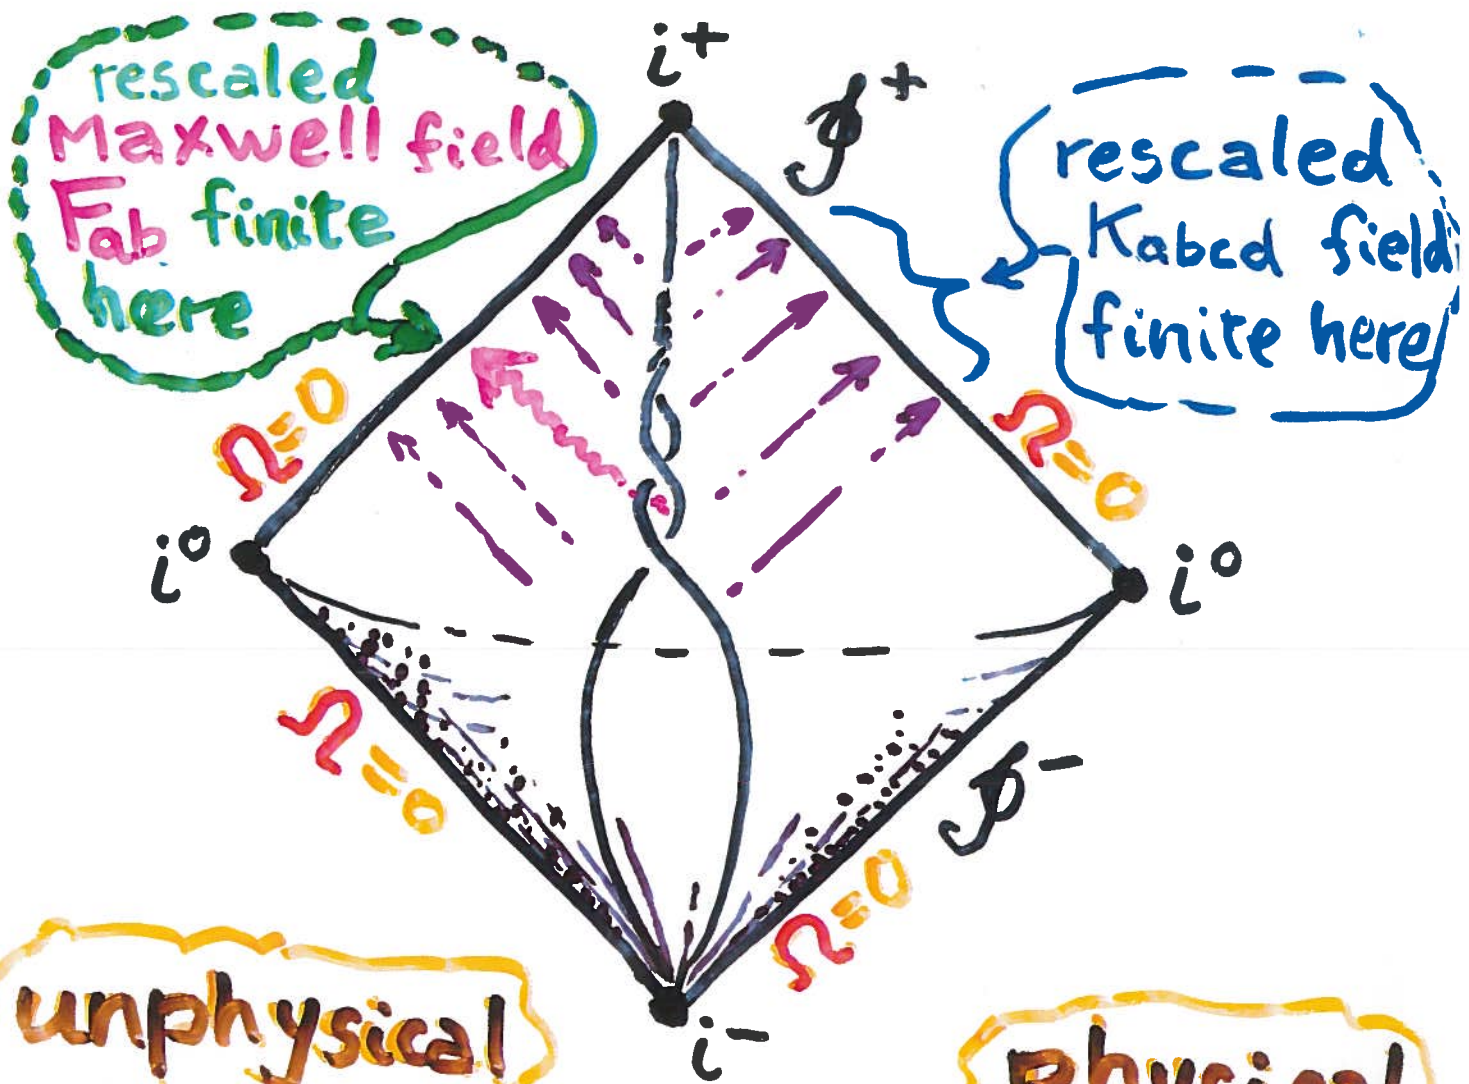 i⁺
𝓘⁺
rescaled
Maxwell field
Fab finite
here
rescaled
Kabcd field
finite here
Ω=0
Ω=0
i⁰
i⁰
Ω=0
𝓘⁻
Ω=0
unphysical
i⁻
Physical